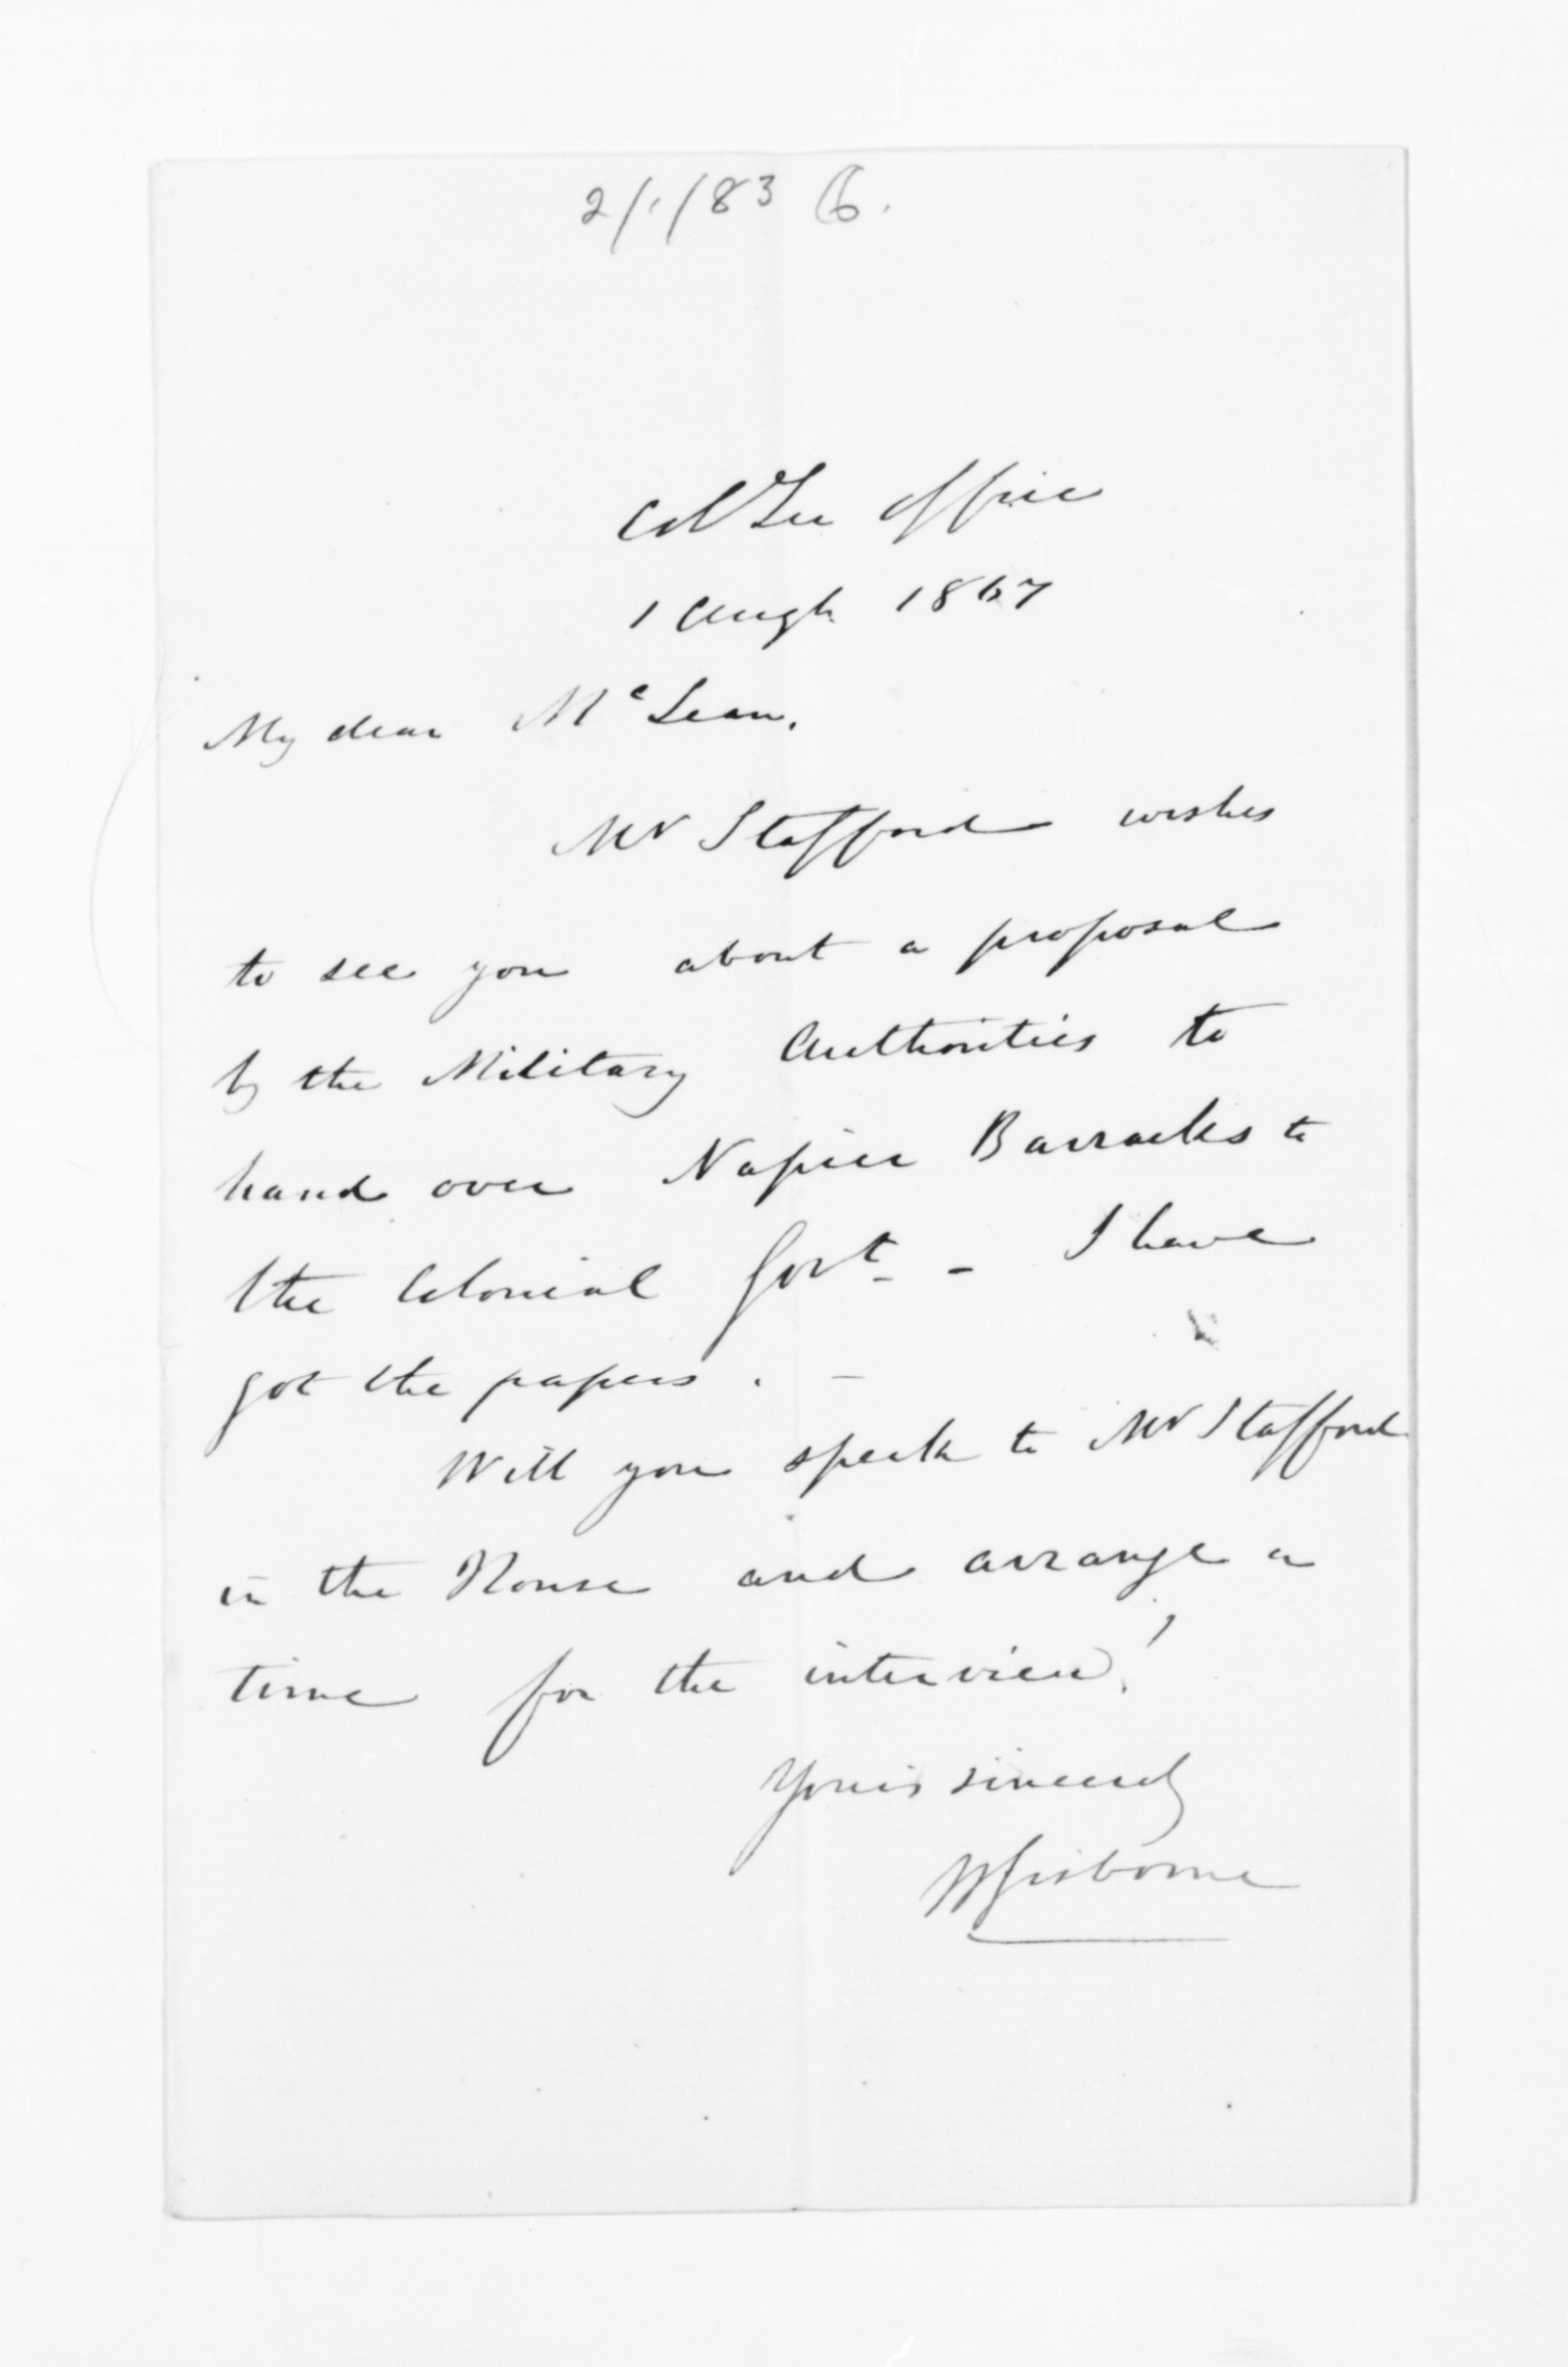 2/1/83
Col Sec Office
1 Augt. 1867
My dear McLean,
Mr Stafford wishes
to see you about a proposal
by the Military Authorities to
hand over Napier Barracks to
the Colonial Govt. - I have
got the papers. -
Will you speak to Mr Stafford
in the House and arrange a
time for the interview?
Yours sincerely
W Gisborne